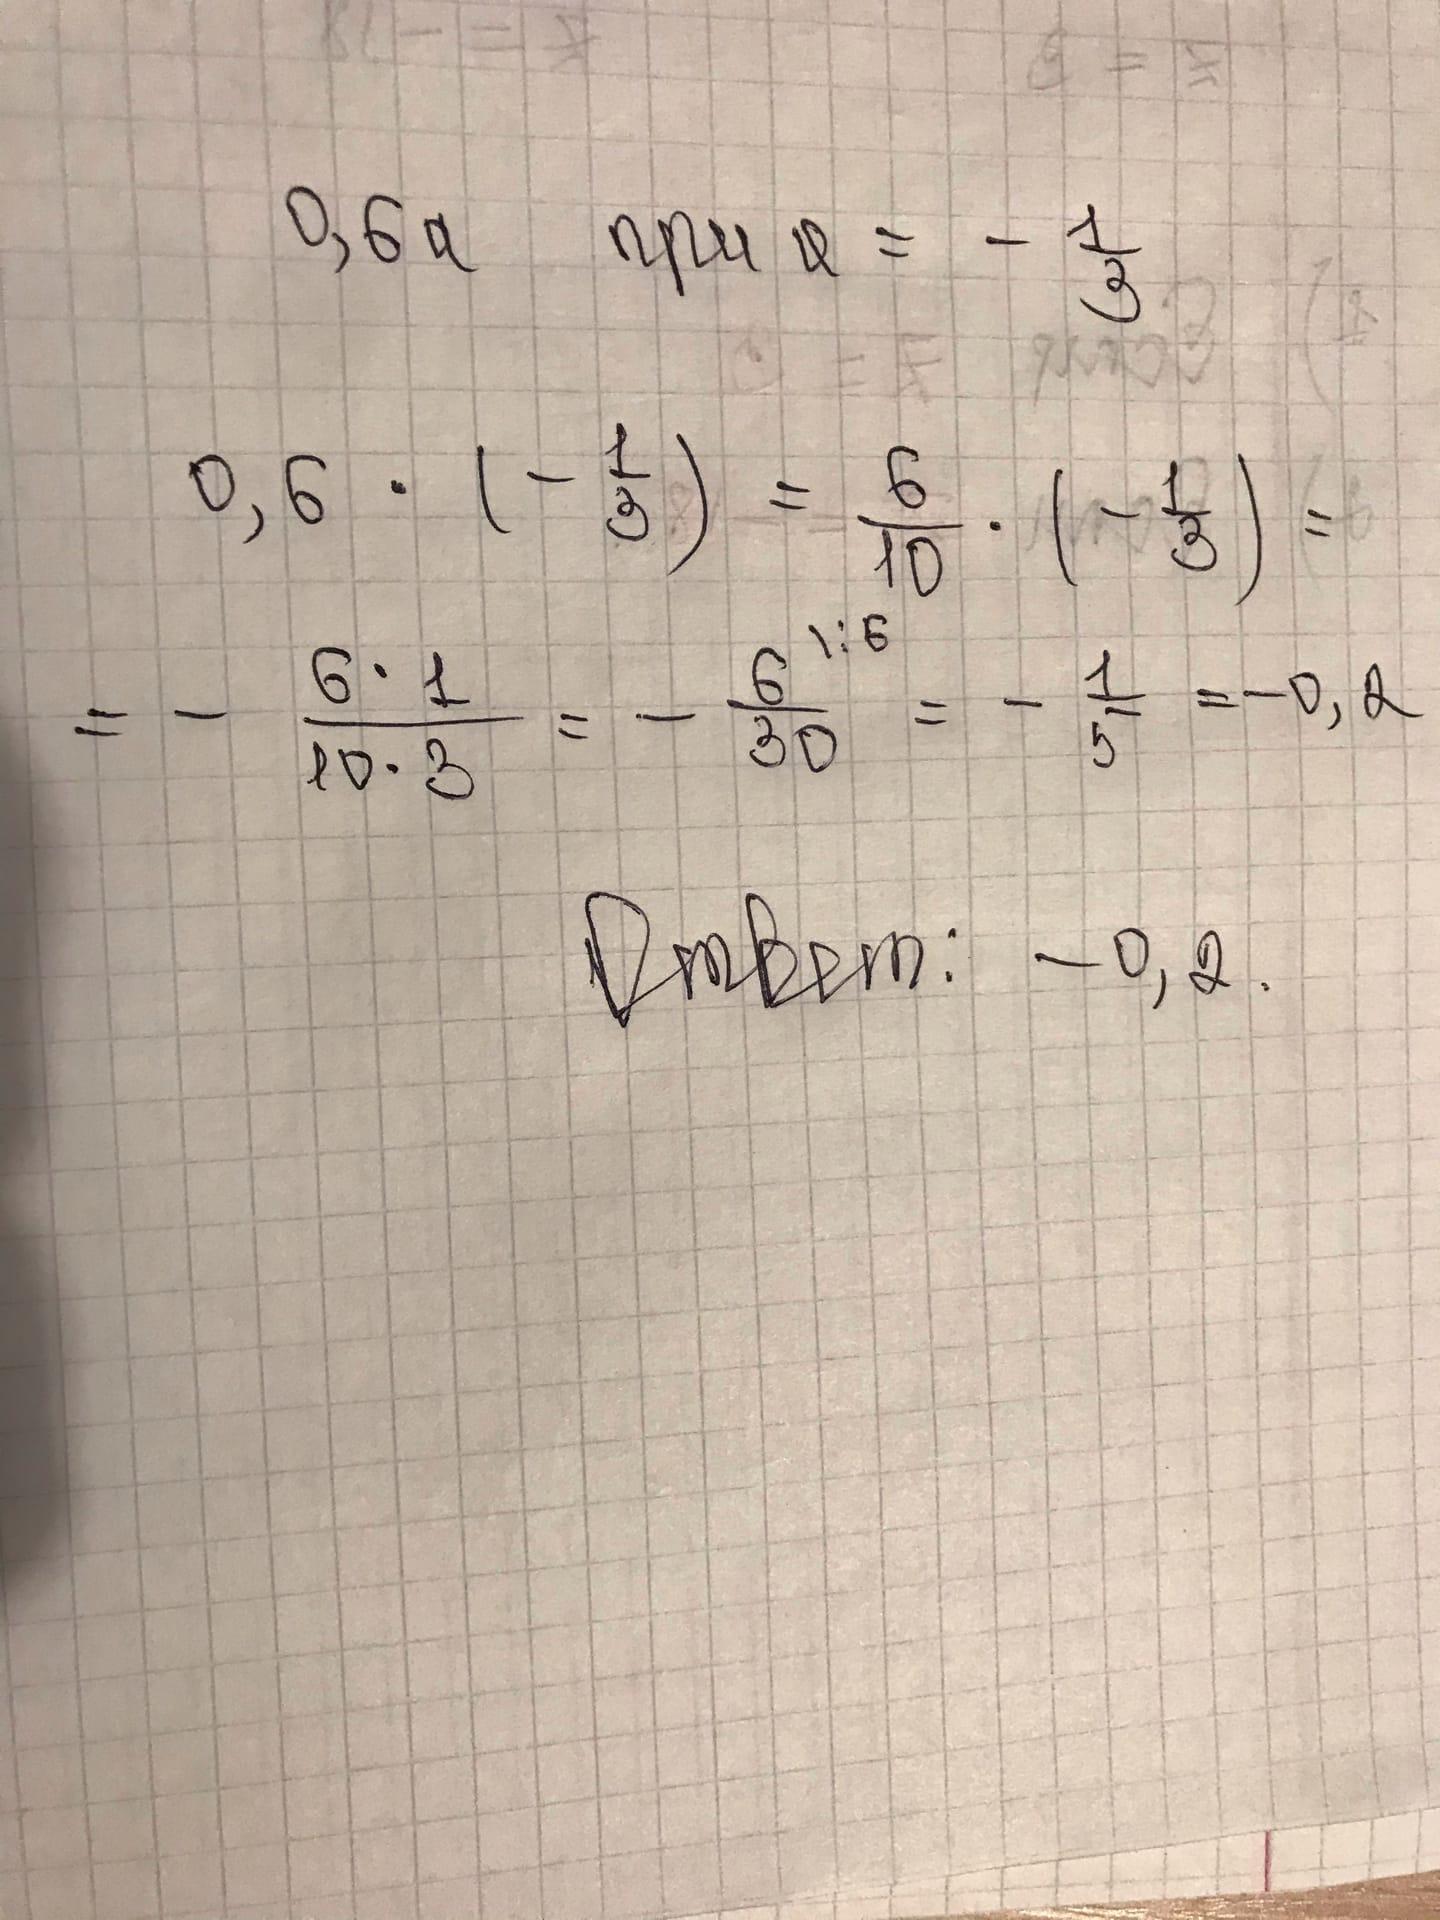 0,6a при a = - 1/3
0,6 · (- 1/3) = 6/10 · (- 1/3) =
= - 6·1/10·3 = - 6/30 \:6 = - 1/5 = -0,2
Ответ: -0,2.